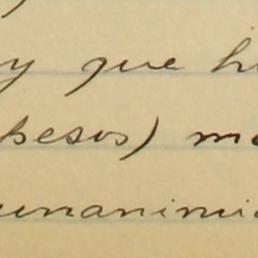 y que hi
pesos) me
unanimi